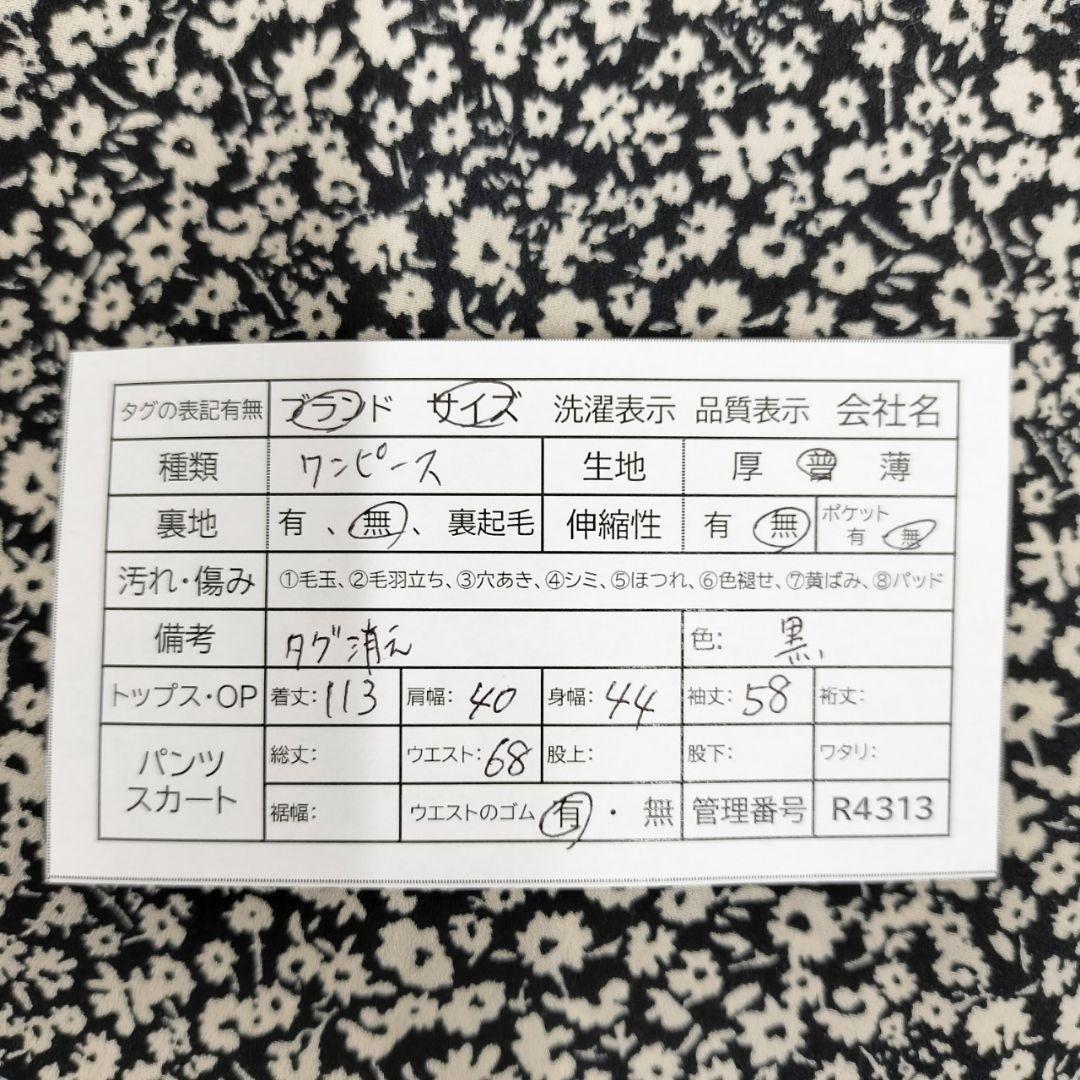 タグの表記有無 ブランド サイズ 洗濯表示 品質表示 会社名
種類 ワンピース 生地 厚 普 薄
裏地 有 、無、裏起毛 伸縮性 有 無 ポケット 有 無
汚れ・傷み ①毛玉、②毛羽立ち、③穴あき、④シミ、⑤ほつれ、⑥色褪せ、⑦黄ばみ、⑧パッド
備考 タグ消え 色: 黒
トップス・OP 着丈:113 肩幅:40 身幅:44 袖丈:58 裄丈:
パンツ スカート 総丈: ウエスト:68 股上: 股下: ワタリ:
裾幅: ウエストのゴム 有・無 管理番号 R4313